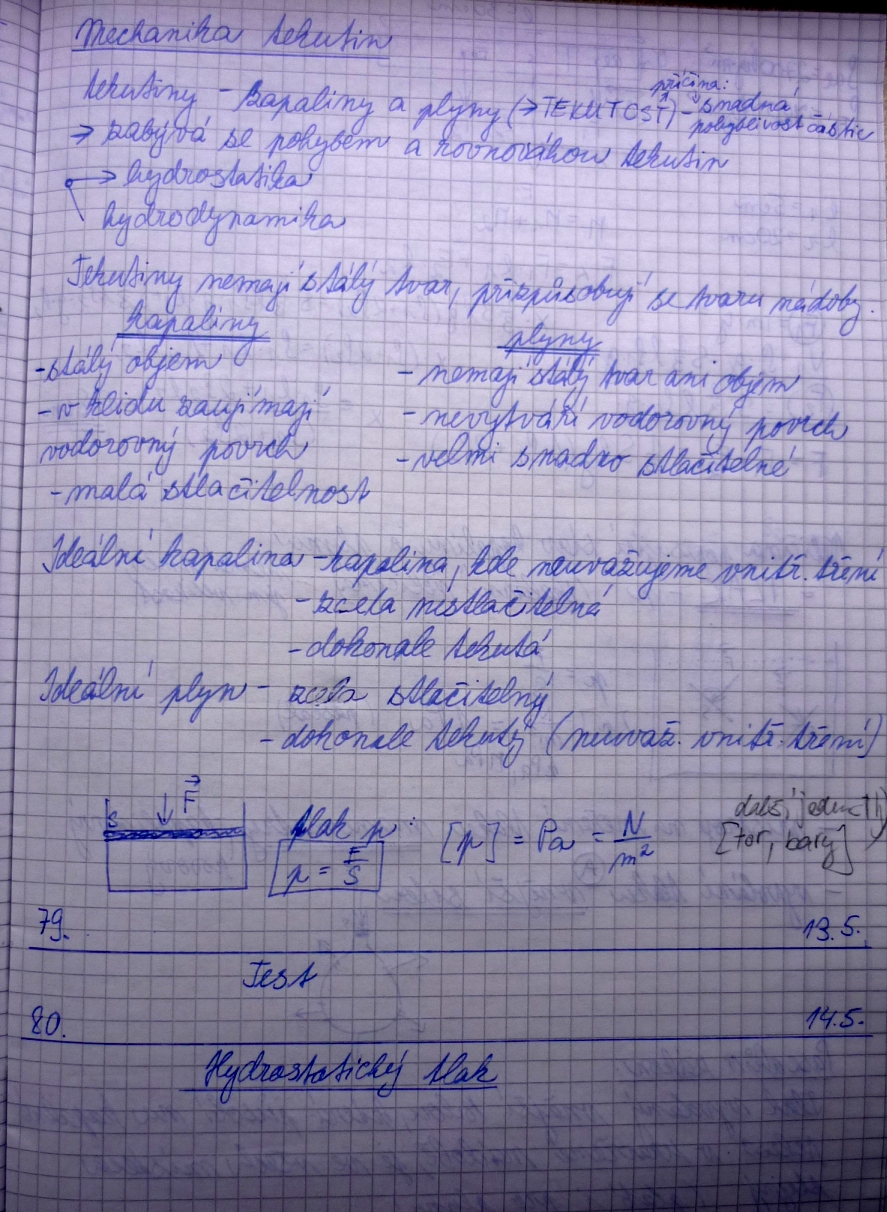 Mechanika tekutin
příčina:
tekutiny - kapaliny a plyny (→ TEKUTOST) - snadná
pohyblivost částic
→ zabývá se pohybem a rovnováhou tekutin
→ hydrostatika
hydrodynamika
Tekutiny nemají stálý tvar, přizpůsobují se tvaru nádoby.
kapaliny
plyny
- stálý objem
- nemají stálý tvar ani objem
- v klidu zaujímají
- nevytváří vodorovný povrch
vodorovný povrch
- velmi snadno stlačitelné
- malá stlačitelnost
Ideální kapalina - kapalina, kde neuvažujeme vnitř. tření
- zcela nestlačitelná
- dokonale tekutá
Ideální plyn - zcela stlačitelný
- dokonale tekutý (neuvaž. vnitř. tření)
S F
tlak p:
p = F/S
[p] = Pa = N/m²
další jedn.
[tor, bary]
79. 13.5.
Test
80. 14.5.
Hydrostatický tlak